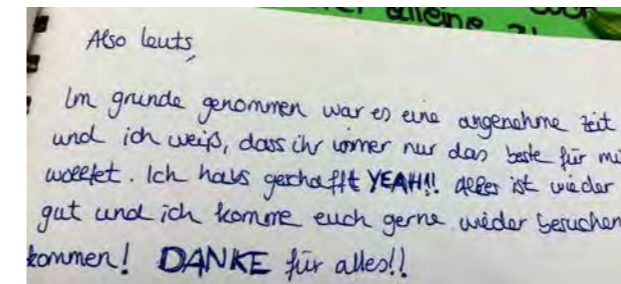 alleine ?!
Also leuts,
Im grunde genommen war es eine angenehme zeit
und ich weiß, dass ihr immer nur das beste für mi
wolltet. Ich habs geschafft YEAH!!! Alles ist wieder
gut und ich komme euch gerne wieder besuchen
kommen! DANKE für alles!!